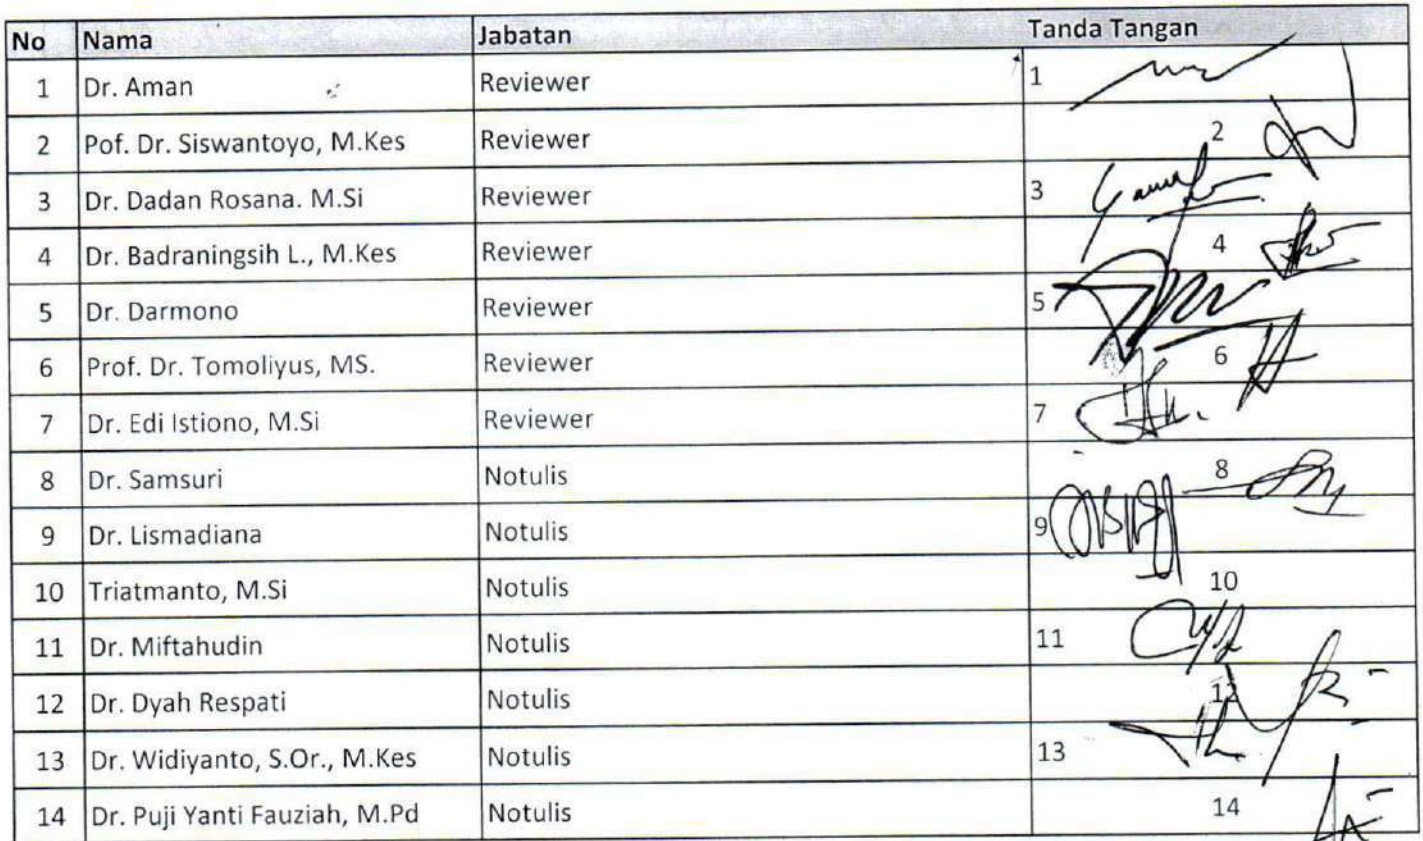 No Nama Jabatan Tanda Tangan
1 Dr. Aman Reviewer 1
2 Pof. Dr. Siswantoyo, M.Kes Reviewer 2
3 Dr. Dadan Rosana. M.Si Reviewer 3
4 Dr. Badraningsih L., M.Kes Reviewer 4
5 Dr. Darmono Reviewer 5
6 Prof. Dr. Tomoliyus, MS. Reviewer 6
7 Dr. Edi Istiono, M.Si Reviewer 7
8 Dr. Samsuri Notulis 8
9 Dr. Lismadiana Notulis 9
10 Triatmanto, M.Si Notulis 10
11 Dr. Miftahudin Notulis 11
12 Dr. Dyah Respati Notulis 12
13 Dr. Widiyanto, S.Or., M.Kes Notulis 13
14 Dr. Puji Yanti Fauziah, M.Pd Notulis 14